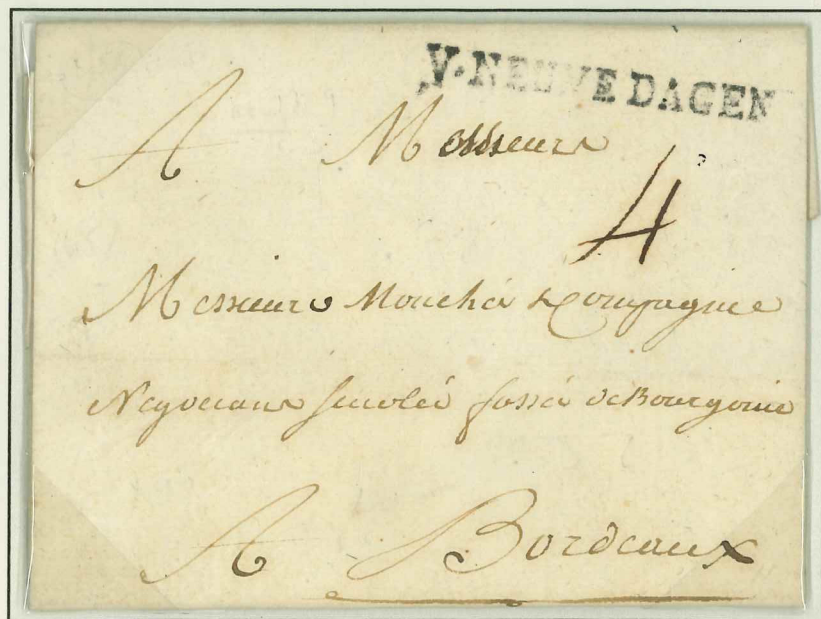 V. NEUVE DAGEN
A Messieurs
4
Messieurs Mouchés & Compagnie
Negocians fossés de Bourgogne
A Bordeaux